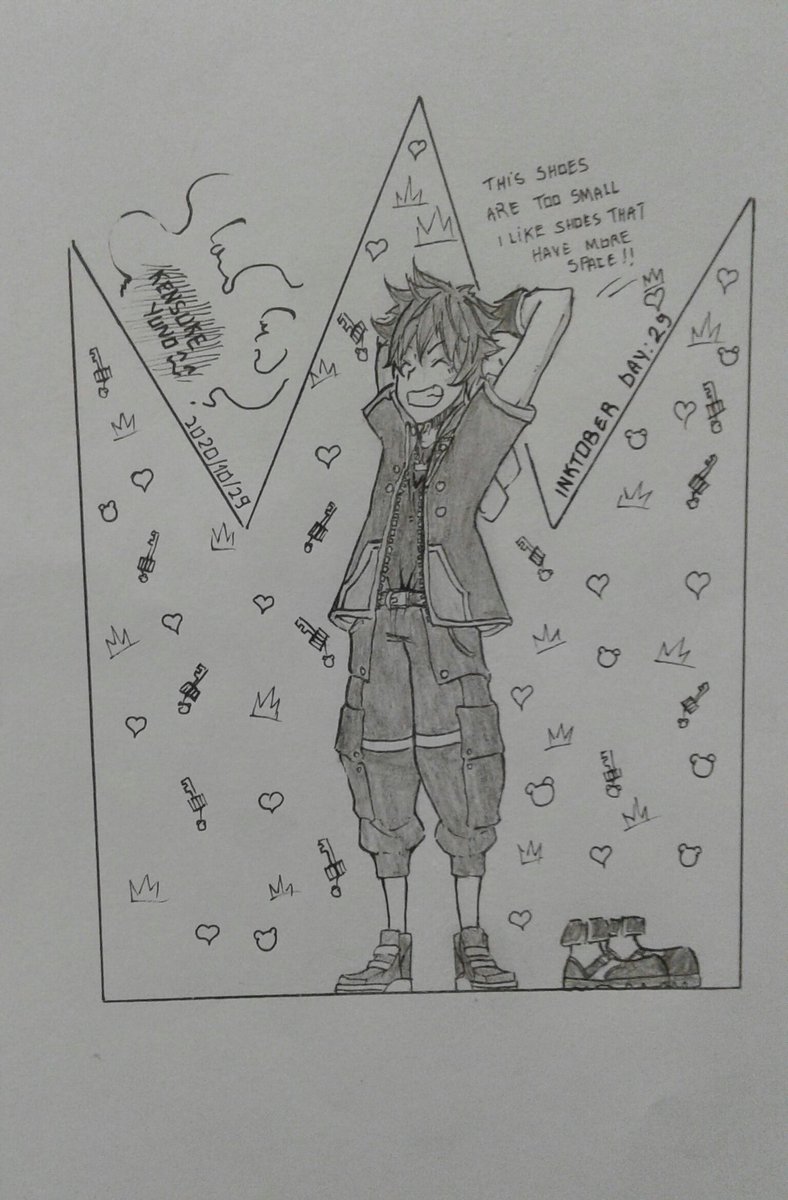 THIS SHOES
ARE TOO SMALL
I LIKE SHOES THAT
HAVE MORE
SPACE!!
KENSUKE
YUNO ^^
2020/10/29
INKTOBER DAY:29